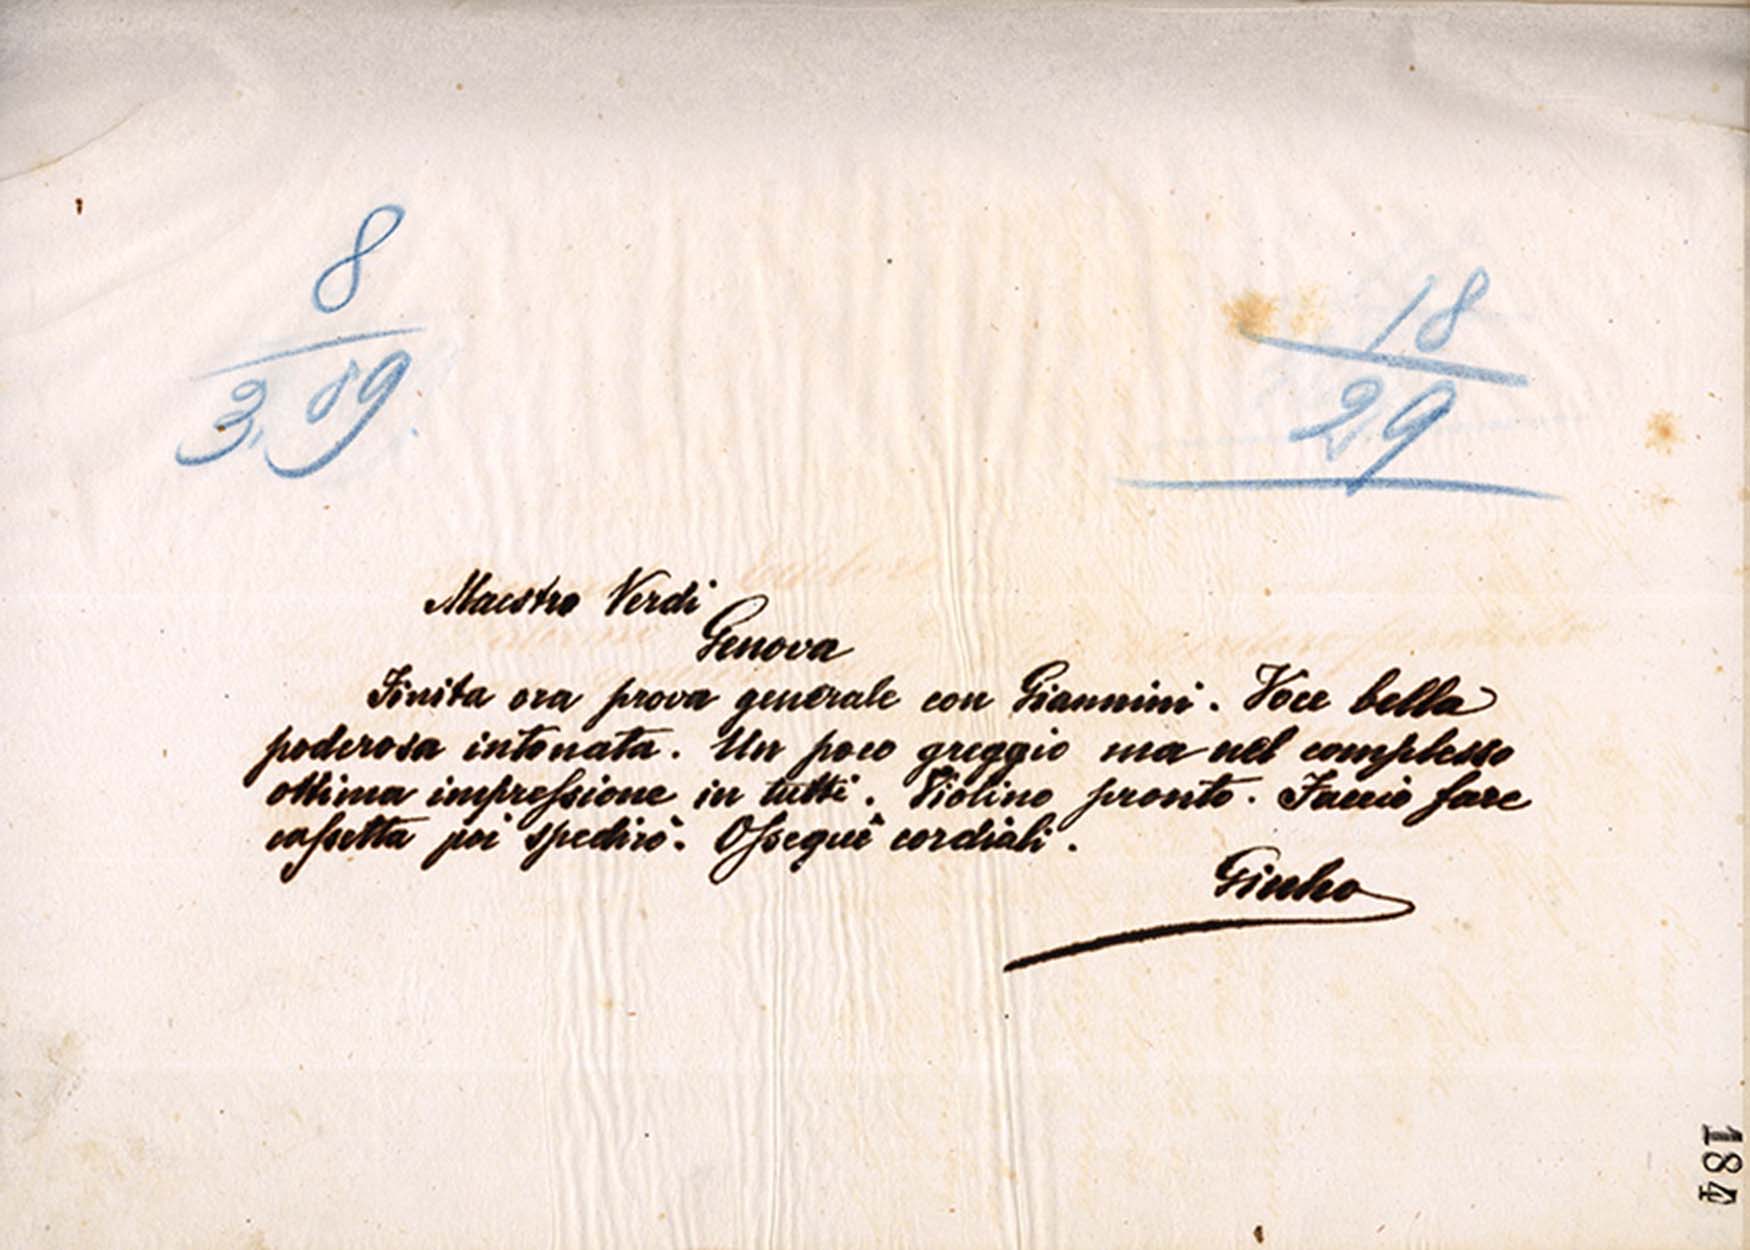 8
3. 89.
18
29
Maestro Verdi
Genova
Finita ora prova generale con Giannini. Voce bella
poderosa intonata. Un poco greggio ma nel complesso
ottima impressione in tutti. Violino pronto. Faccio fare
cassetta poi spedirò. Ossequi cordiali.
Giulio
184